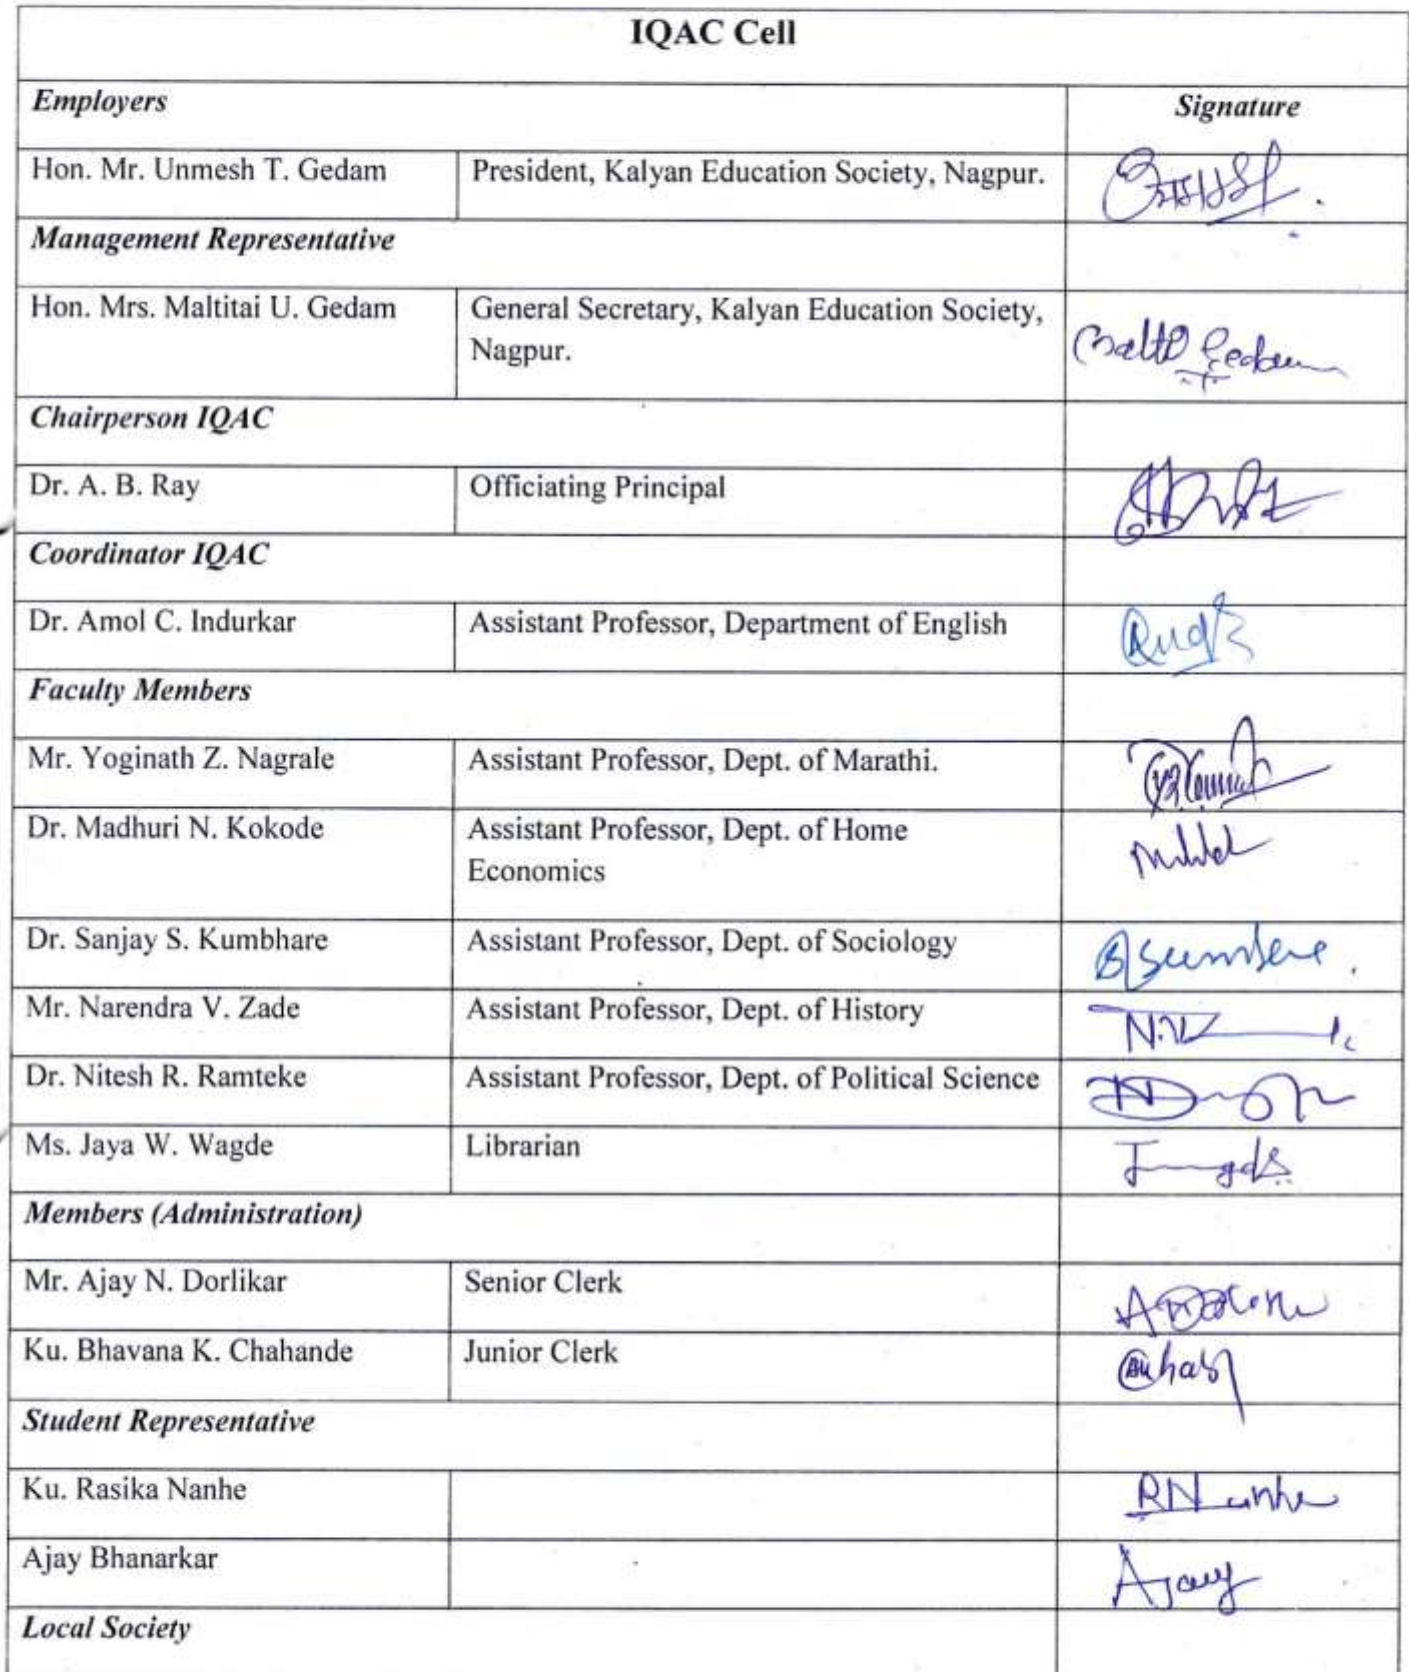 IQAC Cell
Employers Signature
Hon. Mr. Unmesh T. Gedam President, Kalyan Education Society, Nagpur.
Management Representative
Hon. Mrs. Maltitai U. Gedam General Secretary, Kalyan Education Society,
Nagpur.
Malti Gedam
Chairperson IQAC
Dr. A. B. Ray Officiating Principal
Coordinator IQAC
Dr. Amol C. Indurkar Assistant Professor, Department of English
Faculty Members
Mr. Yoginath Z. Nagrale Assistant Professor, Dept. of Marathi.
Dr. Madhuri N. Kokode Assistant Professor, Dept. of Home
Economics
Dr. Sanjay S. Kumbhare Assistant Professor, Dept. of Sociology
Mr. Narendra V. Zade Assistant Professor, Dept. of History
Dr. Nitesh R. Ramteke Assistant Professor, Dept. of Political Science
Ms. Jaya W. Wagde Librarian
Members (Administration)
Mr. Ajay N. Dorlikar Senior Clerk
Ku. Bhavana K. Chahande Junior Clerk
Student Representative
Ku. Rasika Nanhe RNanhe
Ajay Bhanarkar Ajay
Local Society